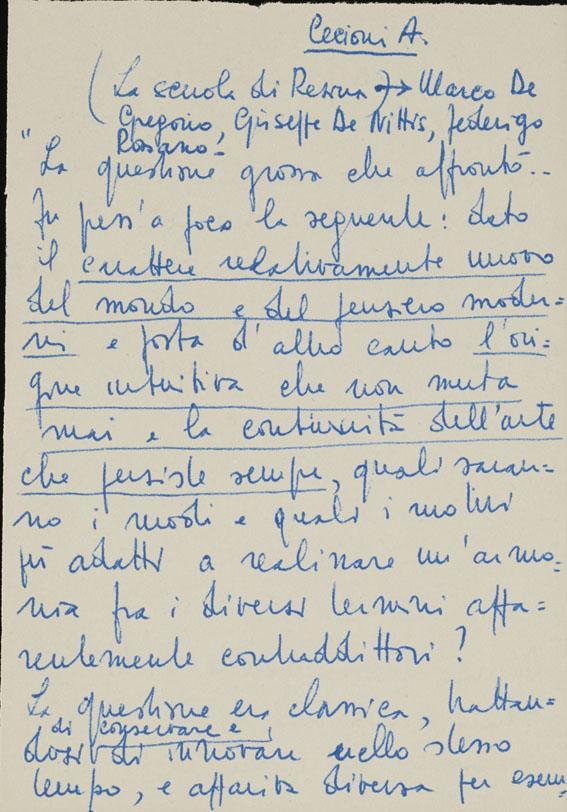 Cecioni A.
(La scuola di Resina → Marco De
Gregorio, Giuseppe De Nittis, Federigo
Rossano -
"La questione grossa che affrontò..
fu press'a poco la seguente: dato
il carattere relativamente nuovo
del mondo e del pensiero moder=
ni e posta d'altro canto l'ori=
gine intuitiva che non muta
mai e la continuità dell'arte
che persiste sempre, quali saran=
no i modi e quali i motivi
più adatti a realizzare un'armo=
nia fra i diversi termini appa=
rentemente contraddittori?
La questione era classica, trattan=
dosi di conservare e di innovare nello stesso
tempo, e appariva diversa per esem